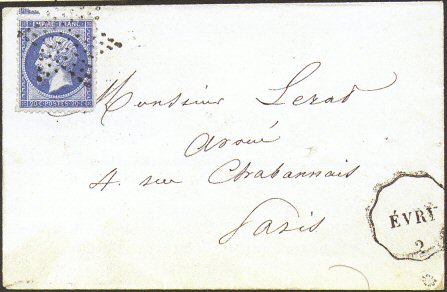 EMPIRE FRANC
20 C POSTES 20 C
Monsieur Lerat
avoué
4. rue Chabannais
Paris
ÉVRY
2